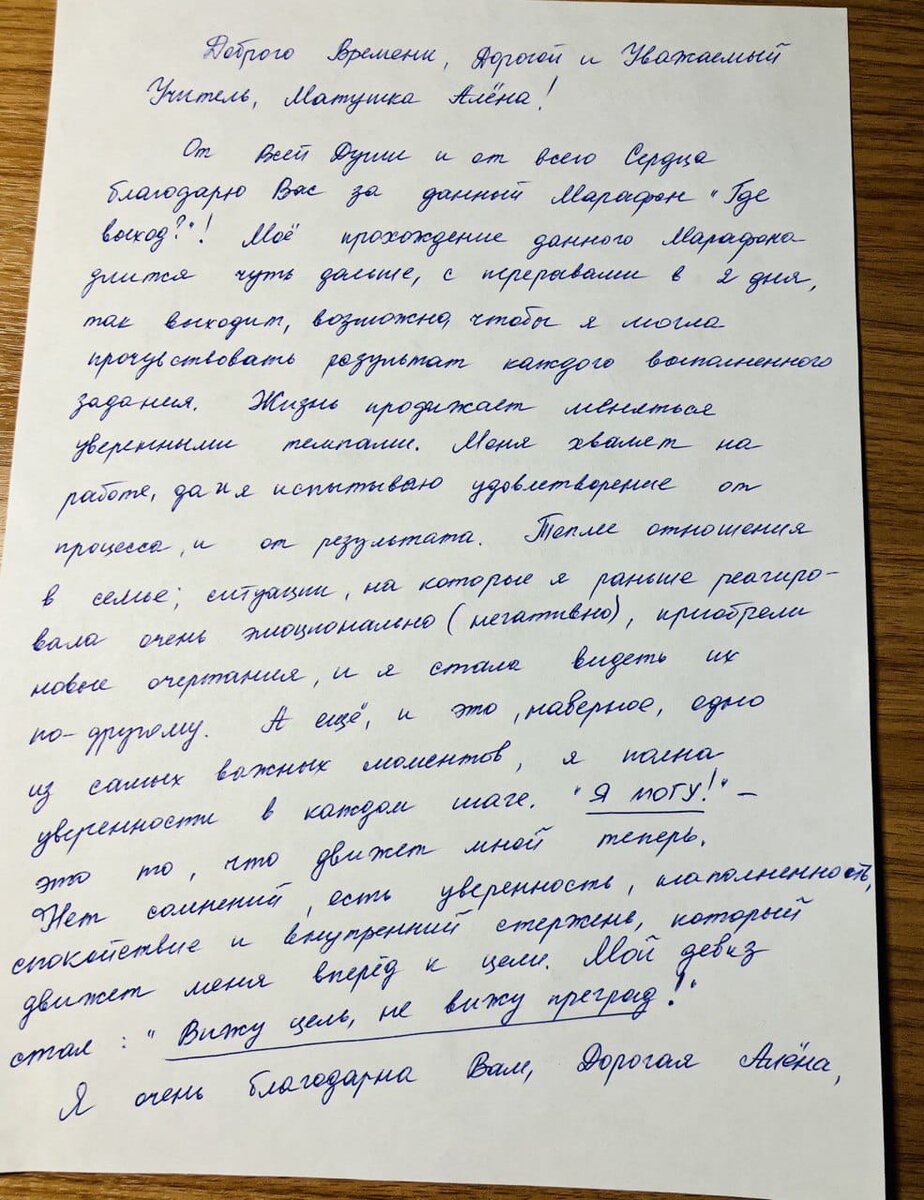 Доброго Времени, Дорогой и Уважаемый
Учитель, Матушка Алёна!
От всей Души и от всего Сердца
благодарю Вас за данный Марафон "Где
выход?"! Моё прохождение данного Марафона
длится чуть дальше, с перерывами в 2 дня,
так выходит, возможно, чтобы я могла
прочувствовать результат каждого выполненного
задания. Жизнь продолжает меняться
уверенными темпами. Меня хвалят на
работе, да и я испытываю удовлетворение от
процесса, и от результата. Теплые отношения
в семье; ситуации, на которые я раньше реагиро-
вала очень эмоционально (негативно), приобрели
новые очертания, и я стала видеть их
по-другому. А ещё, и это, наверное, одно
из самых важных моментов, я полна
уверенности в каждом шаге. "Я могу!" –
это то, что движет мной теперь.
Нет сомнений, есть уверенность, наполненность,
спокойствие и внутренний стержень, который
движет меня вперёд к цели. Мой девиз
стал: "Вижу цель, не вижу преград!"
Я очень благодарна Вам, Дорогая Алёна,